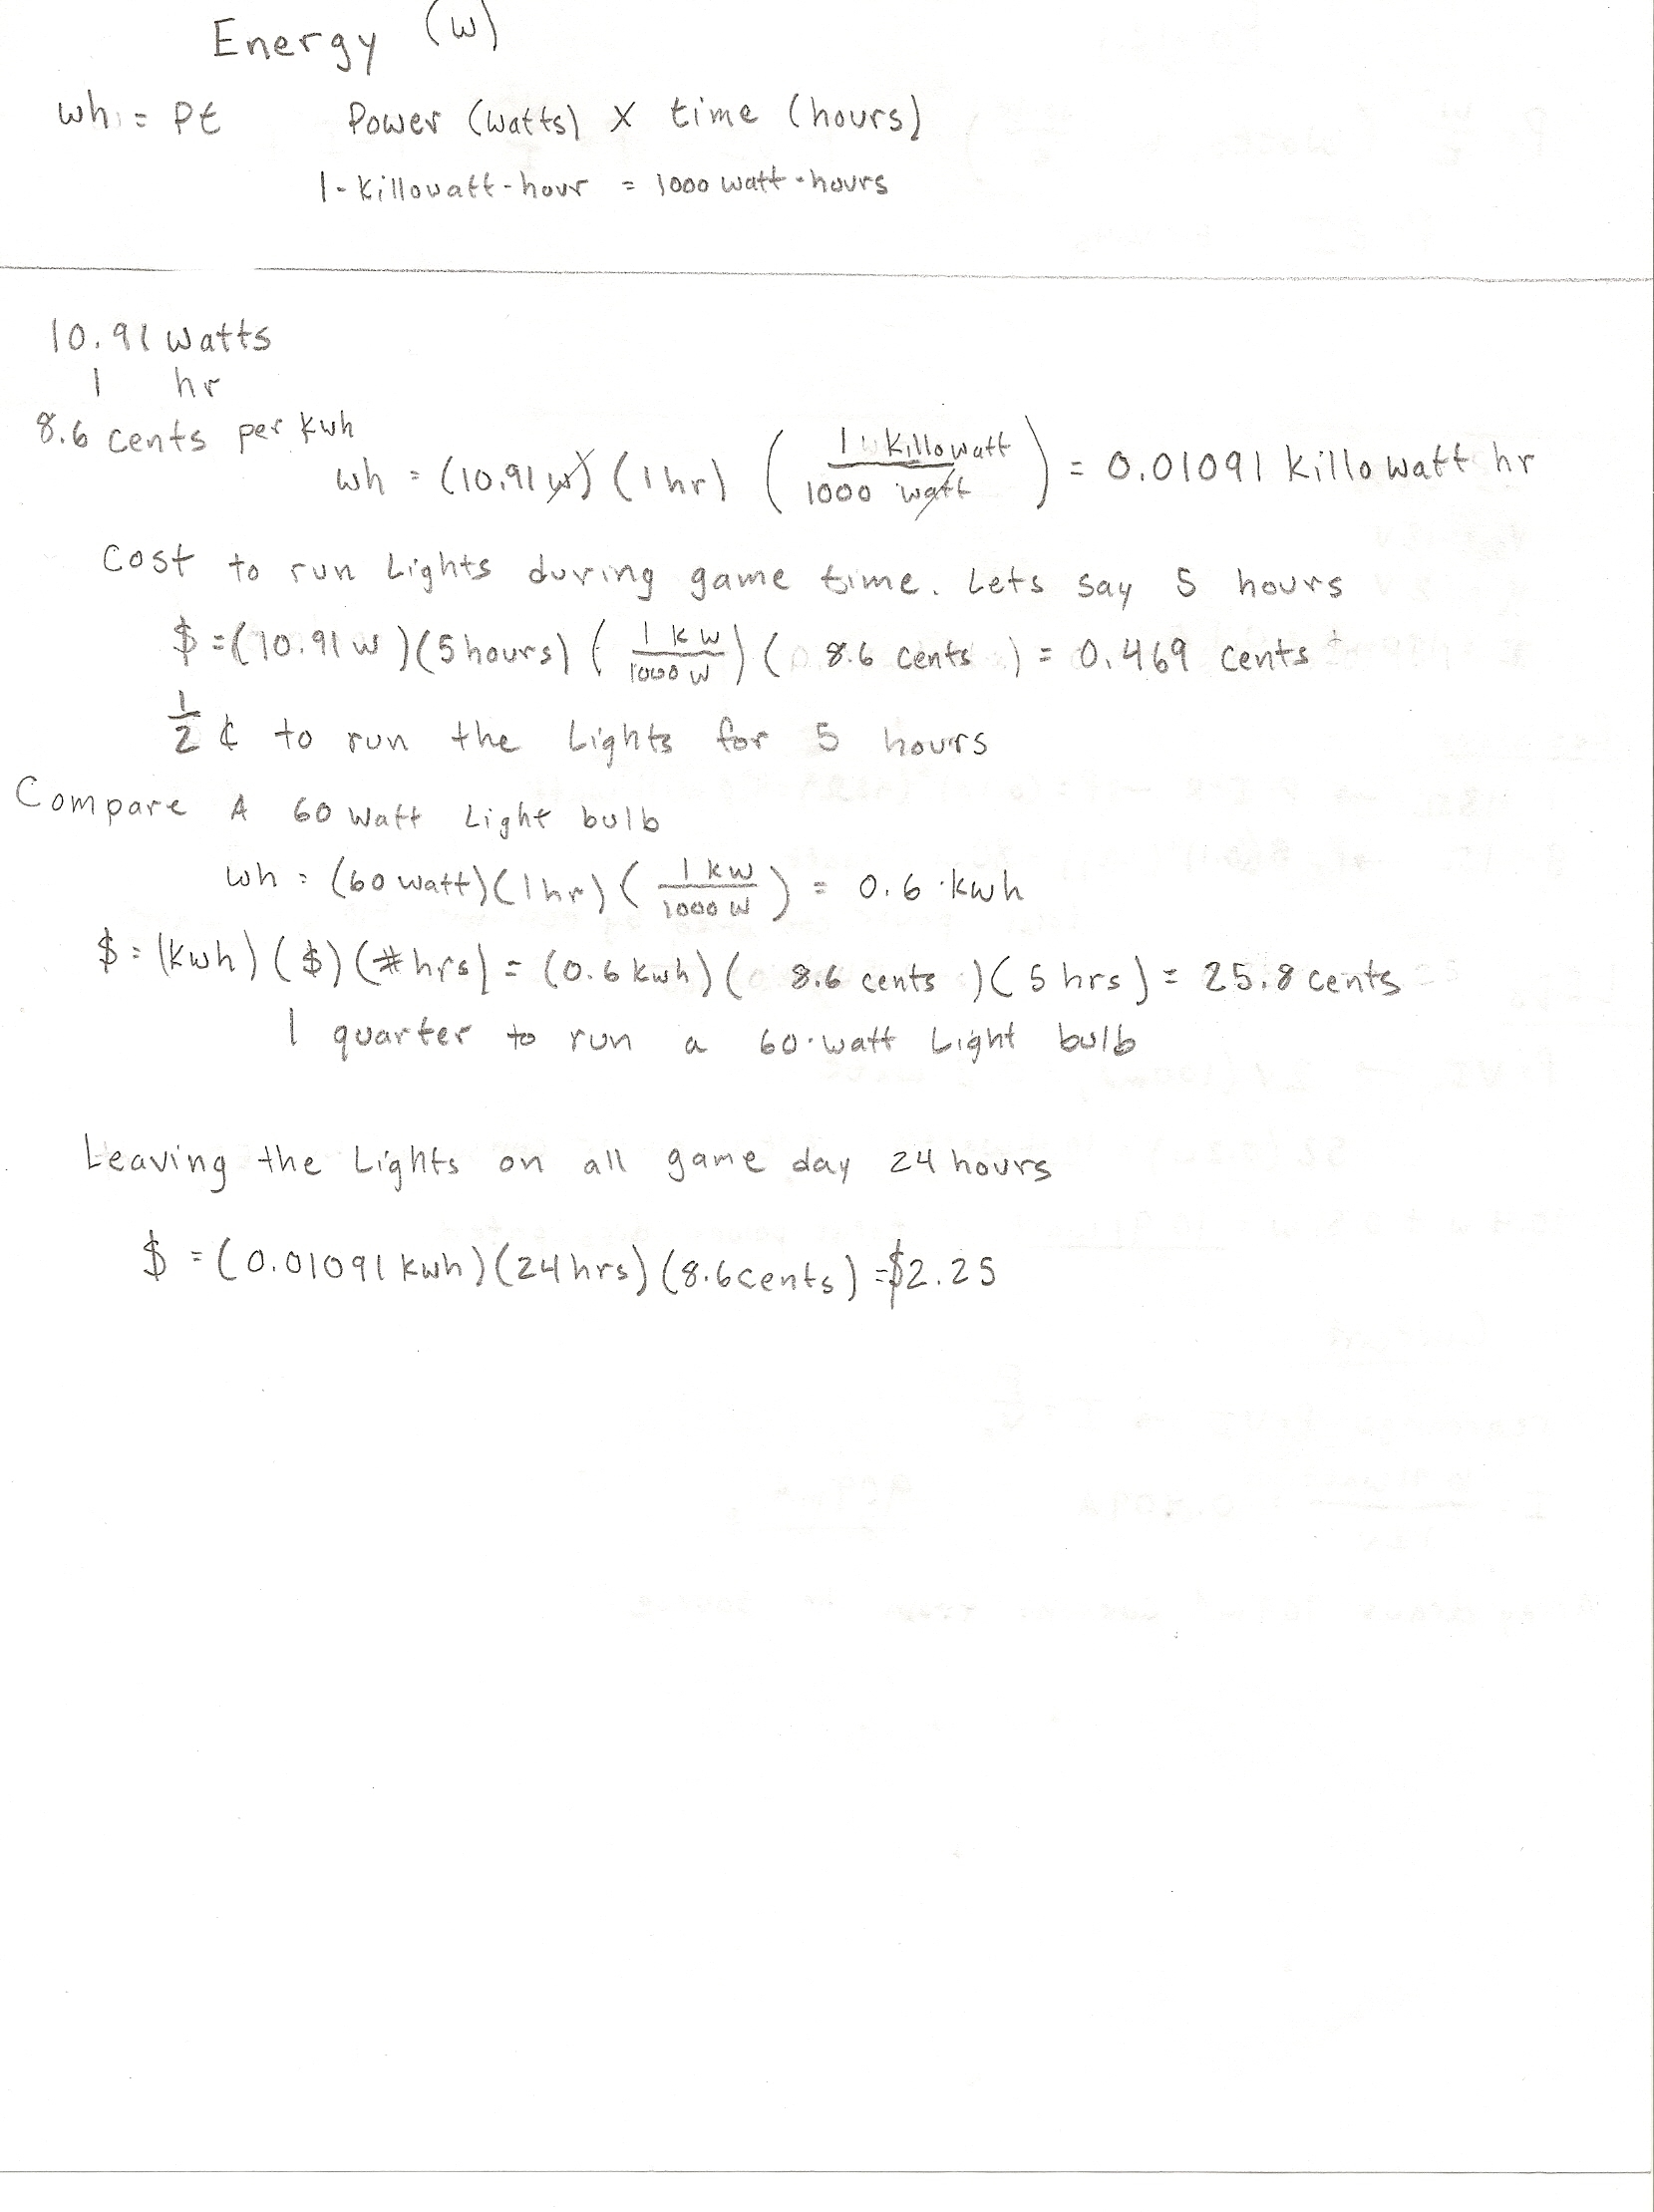 Energy (w)
wh = Pt Power (watts) X time (hours)
1-Killowatt-hour = 1000 watt-hours
10.91 watts
1 hr
8.6 cents per kwh
wh = (10.91 w) (1 hr) ( 1 Killowatt / 1000 watt ) = 0.01091 killo watt hr
Cost to run Lights during game time. Lets say 5 hours
$ = (10.91 w)(5 hours) ( 1 kw / 1000 w ) ( 8.6 cents ) = 0.469 cents
1/2 ¢ to run the Lights for 5 hours
Compare A 60 Watt Light bulb
wh = (60 watt)(1 hr) ( 1 kw / 1000 w ) = 0.6 kwh
$ = (kwh) ($) (# hrs) = (0.6 kwh) ( 8.6 cents ) ( 5 hrs) = 25.8 cents
1 quarter to run a 60-watt Light bulb
Leaving the Lights on all game day 24 hours
$ = (0.01091 kwh) (24 hrs) (8.6 cents) = $2.25